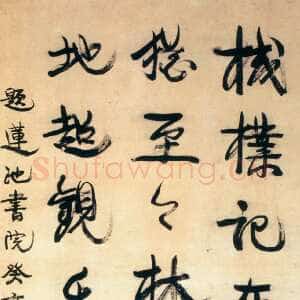 棫樸記
至々林
地超觀
題蓮池書院癸
Shufawang.cn